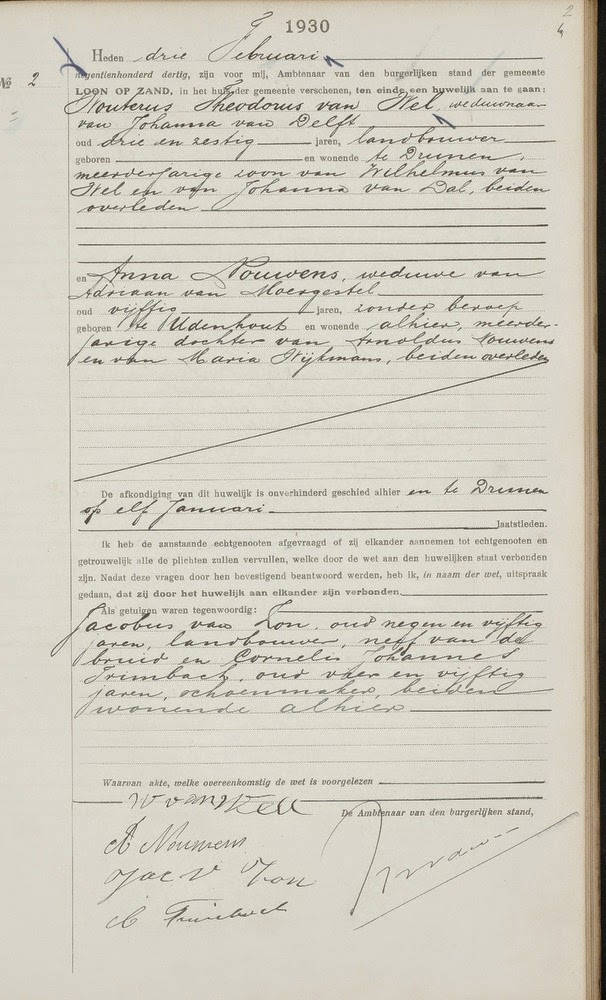 2
1930
4
Heden drie Februari
negentienhonderd dertig, zijn voor mij, Ambtenaar van den burgerlijken stand der gemeente
Nº 2
LOON OP ZAND, in het huis der gemeente verschenen, ten einde een huwelijk aan te gaan:
Wouterus Theodorus van Wel, weduwnaar
van Johanna van Delft
oud drie en zestig jaren, landbouwer
geboren en wonende te Drunen,
meerderjarige zoon van Wilhelmus van
Wel en van Johanna van Dal, beiden
overleden
en Anna Nouwens, weduwe van
Adriaan van Moergestel
oud vijftig jaren, zonder beroep
geboren te Udenhout en wonende alhier, meerder-
jarige dochter van Arnoldus Nouwens
en van Maria Wijtmans, beiden overleden
De afkondiging van dit huwelijk is onverhinderd geschied alhier en te Drunen
op elf Januari
laatstleden.
Ik heb de aanstaande echtgenooten afgevraagd of zij elkander aannemen tot echtgenooten en
getrouwelijk alle de plichten zullen vervullen, welke door de wet aan den huwelijken staat verbonden
zijn. Nadat deze vragen door hen bevestigend beantwoord werden, heb ik, in naam der wet, uitspraak
gedaan, dat zij door het huwelijk aan elkander zijn verbonden.
Als getuigen waren tegenwoordig:
Jacobus van Zon, oud negen en vijftig
jaren, landbouwer, neef van de
bruid en Cornelis Johannes
Trimbach, oud vier en vijftig
jaren, schoenmaker, beiden
wonende alhier
Waarvan akte, welke overeenkomstig de wet is voorgelezen
W van Wel
De Ambtenaar van den burgerlijken stand,
A Nouwens
Jac v Zon
C Trimbach